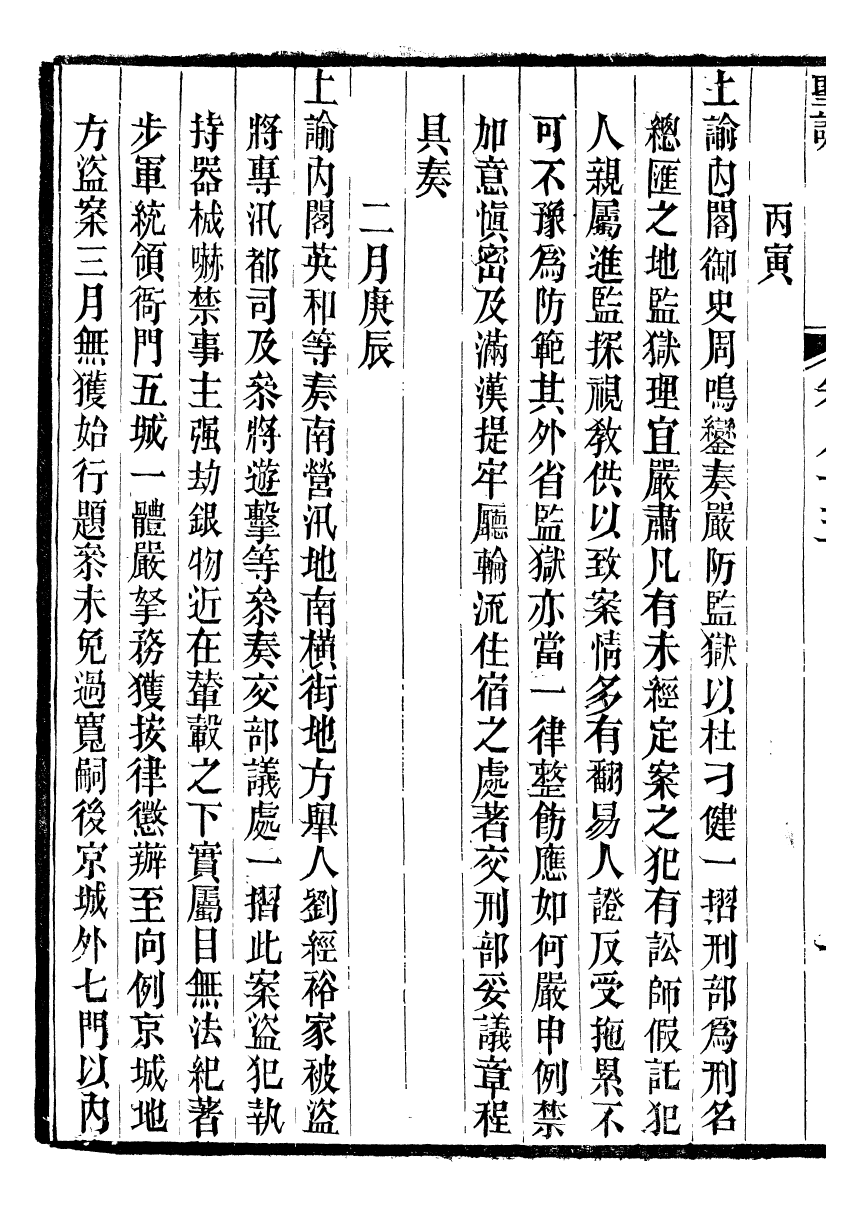 聖訓
丙寅
上諭內閣御史周鳴鑾奏嚴防監獄以杜刁健一摺刑部爲刑名
總匯之地監獄理宜嚴肅凡有未經定案之犯有訟師假託犯
人親屬進監探視敎供以致案情多有翻易人證反受拖累不
可不豫爲防範其外省監獄亦當一律整飭應如何嚴申例禁
如意愼密及滿漢提牢廳輪流住宿之處著交刑部妥議章程
具奏
二月庚辰
上諭內閣英和等奏南營汛地南橫街地方舉人劉經裕家被盜
將專汛都司及叅將遊擊等叅奏交部議處一摺此案盜犯執
持器械嚇禁事主强劫銀物近在輦轂之下實屬目無法紀著
步軍統領衙門五城一體嚴拏務獲按律懲辦至向例京城地
方盜案三月無獲始行題叅未免過寬嗣後京城外七門以內